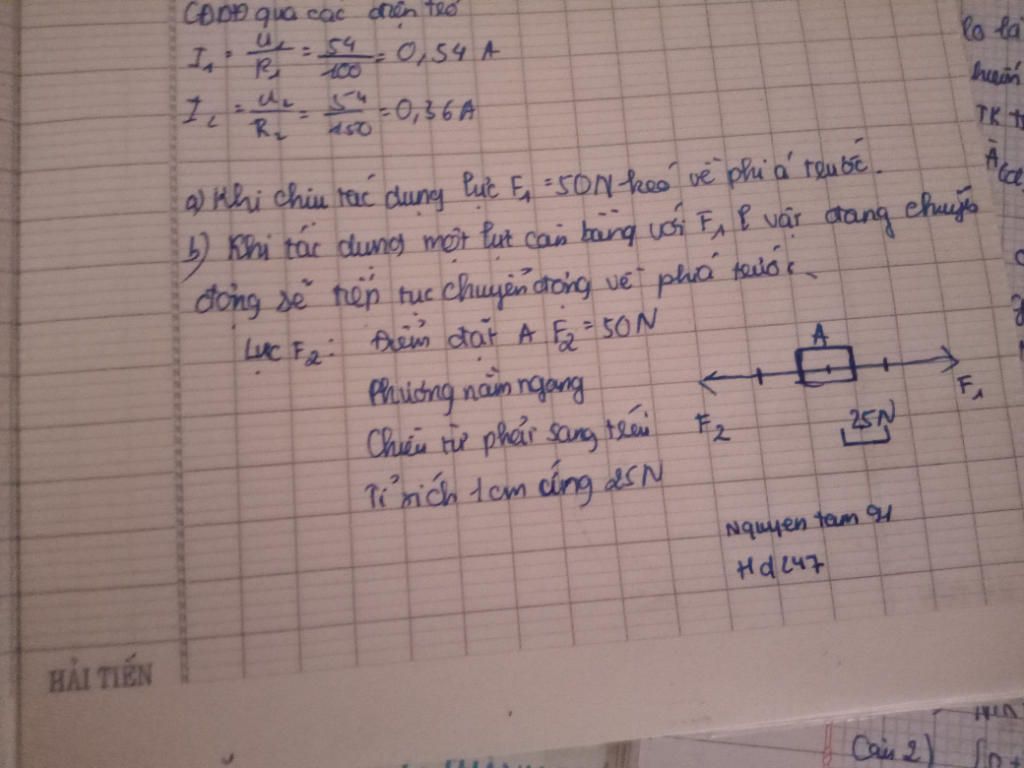 CĐDĐ qua các điện trở
I₁ = U₁/R₁ = 54/100 = 0,54 A
I₂ = U₂/R₂ = 54/150 = 0,36A
a) Khi chịu tác dụng lực F₁ = 50N kéo về phía trước.
b) Khi tác dụng một lực cân bằng với F₁ vật đang chuyển
động sẽ tiếp tục chuyển động về phía trước.
Lực F₂: Điểm đặt A F₂ = 50N
Phương nằm ngang
Chiều từ phải sang trái
Tỉ xích 1cm ứng 25N
A
F₂
F₁
25N
Nguyen tam 91
Hd 247
HẢI TIẾN
Câu 2)